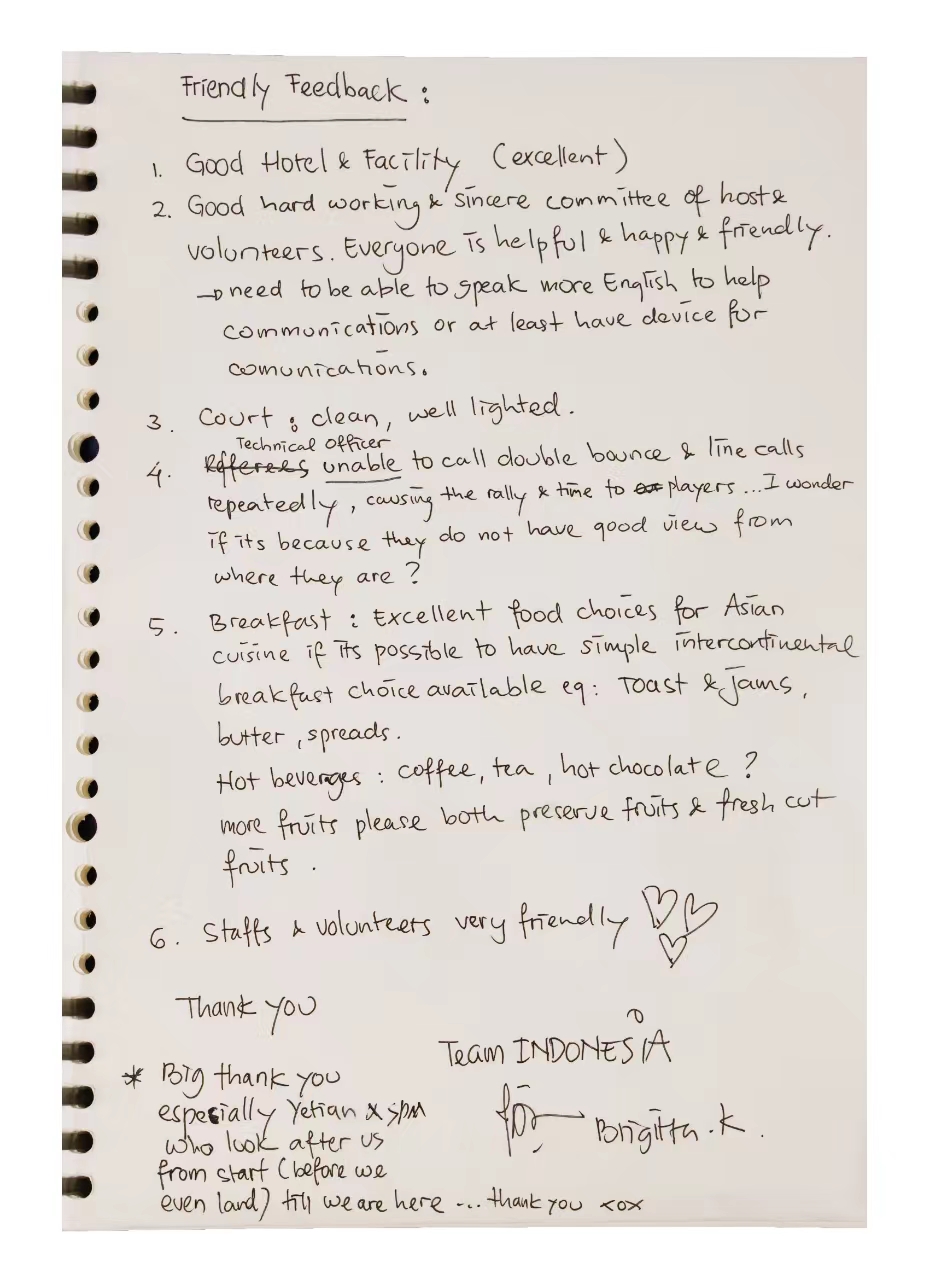 Friendly Feedback :
1. Good Hotel & Facility (excellent)
2. Good hard working & sincere committee of host &
volunteers. Everyone is helpful & happy & friendly.
→ need to be able to speak more English to help
communications or at least have device for
comunications.
3. Court : clean, well lighted.
Technical Officer
4. Refferees unable to call double bounce & line calls
repeatedly, causing the rally & time to players ... I wonder
if its because they do not have good view from
where they are ?
5. Breakfast : Excellent food choices for Asian
cuisine if its possible to have simple intercontinental
breakfast choice available eg: Toast & Jams,
butter, spreads.
Hot beverages : coffee, tea, hot chocolate ?
more fruits please both preserve fruits & fresh cut
fruits .
6. Staffs & volunteers very friendly
Thank you
Team INDONESIA
* Big thank you
especially Yetian &
who look after us
from start (before we
even land) till we are here ... thank you xox
Brigitta . K .